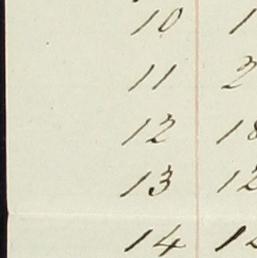 10 1
11 2
12 18
13 12
14 12